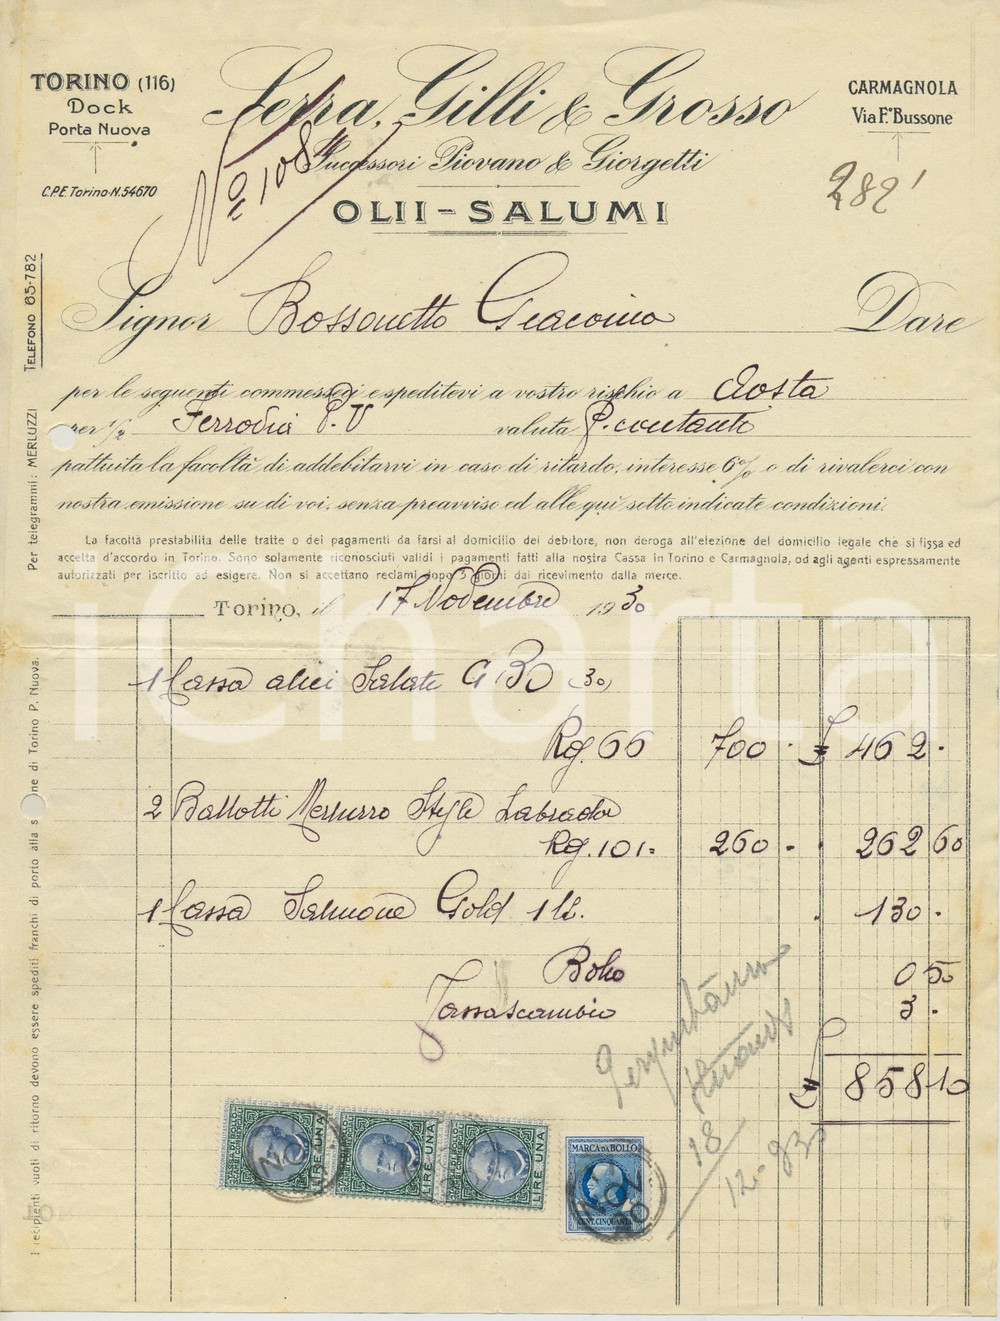 TORINO (116)
Dock
Porta Nuova
C.P.E. Torino-N. 54670
Serra, Gilli & Grosso
Successori Piovano & Giorgetti
OLII-SALUMI
CARMAGNOLA
Via F. Bussone
No 1084
282
TELEFONO 65-782
Per telegrammi: MERLUZZI
Signor Bossonetto Giacomo Dare
per le seguenti commesseci e speditevi a vostro rischio a Aosta
per 1/2 Ferrovia P.V valuta P. contanti
pattuita la facoltà di addebitarvi in caso di ritardo, interesse 6% o di rivalerci con
nostra emissione su di voi, senza preavviso ed alle qui sotto indicate condizioni.
La facoltà prestabilita delle tratte o dei pagamenti da farsi al domicilio del debitore, non deroga all'elezione del domicilio legale che si fissa ed
accetta d'accordo in Torino. Sono solamente riconosciuti validi i pagamenti fatti alla nostra Cassa in Torino e Carmagnola, od agli agenti espressamente
autorizzati per iscritto ad esigere. Non si accettano reclami dopo 5 giorni dal ricevimento dalla merce.
Torino, il 17 Novembre 1930
1 Cassa alici Salate G BO (30)
Kg. 66 700 . £ 462 .
2 Ballotti Merluzzo Style Labrador
Kg. 101 = 260 . 262 60
1 Cassa Salmone Gold 1 lb. 130 .
Bollo 0 50
Tassa scambio 3 .
£ 858 10
18
12-930
LIRE UNA
LIRE UNA
LIRE UNA
MARCA DA BOLLO
CENT. CINQUANTA
I recipienti vuoti di ritorno devono essere spediti franchi di porto alla s ne di Torino P. Nuova.
iCharta